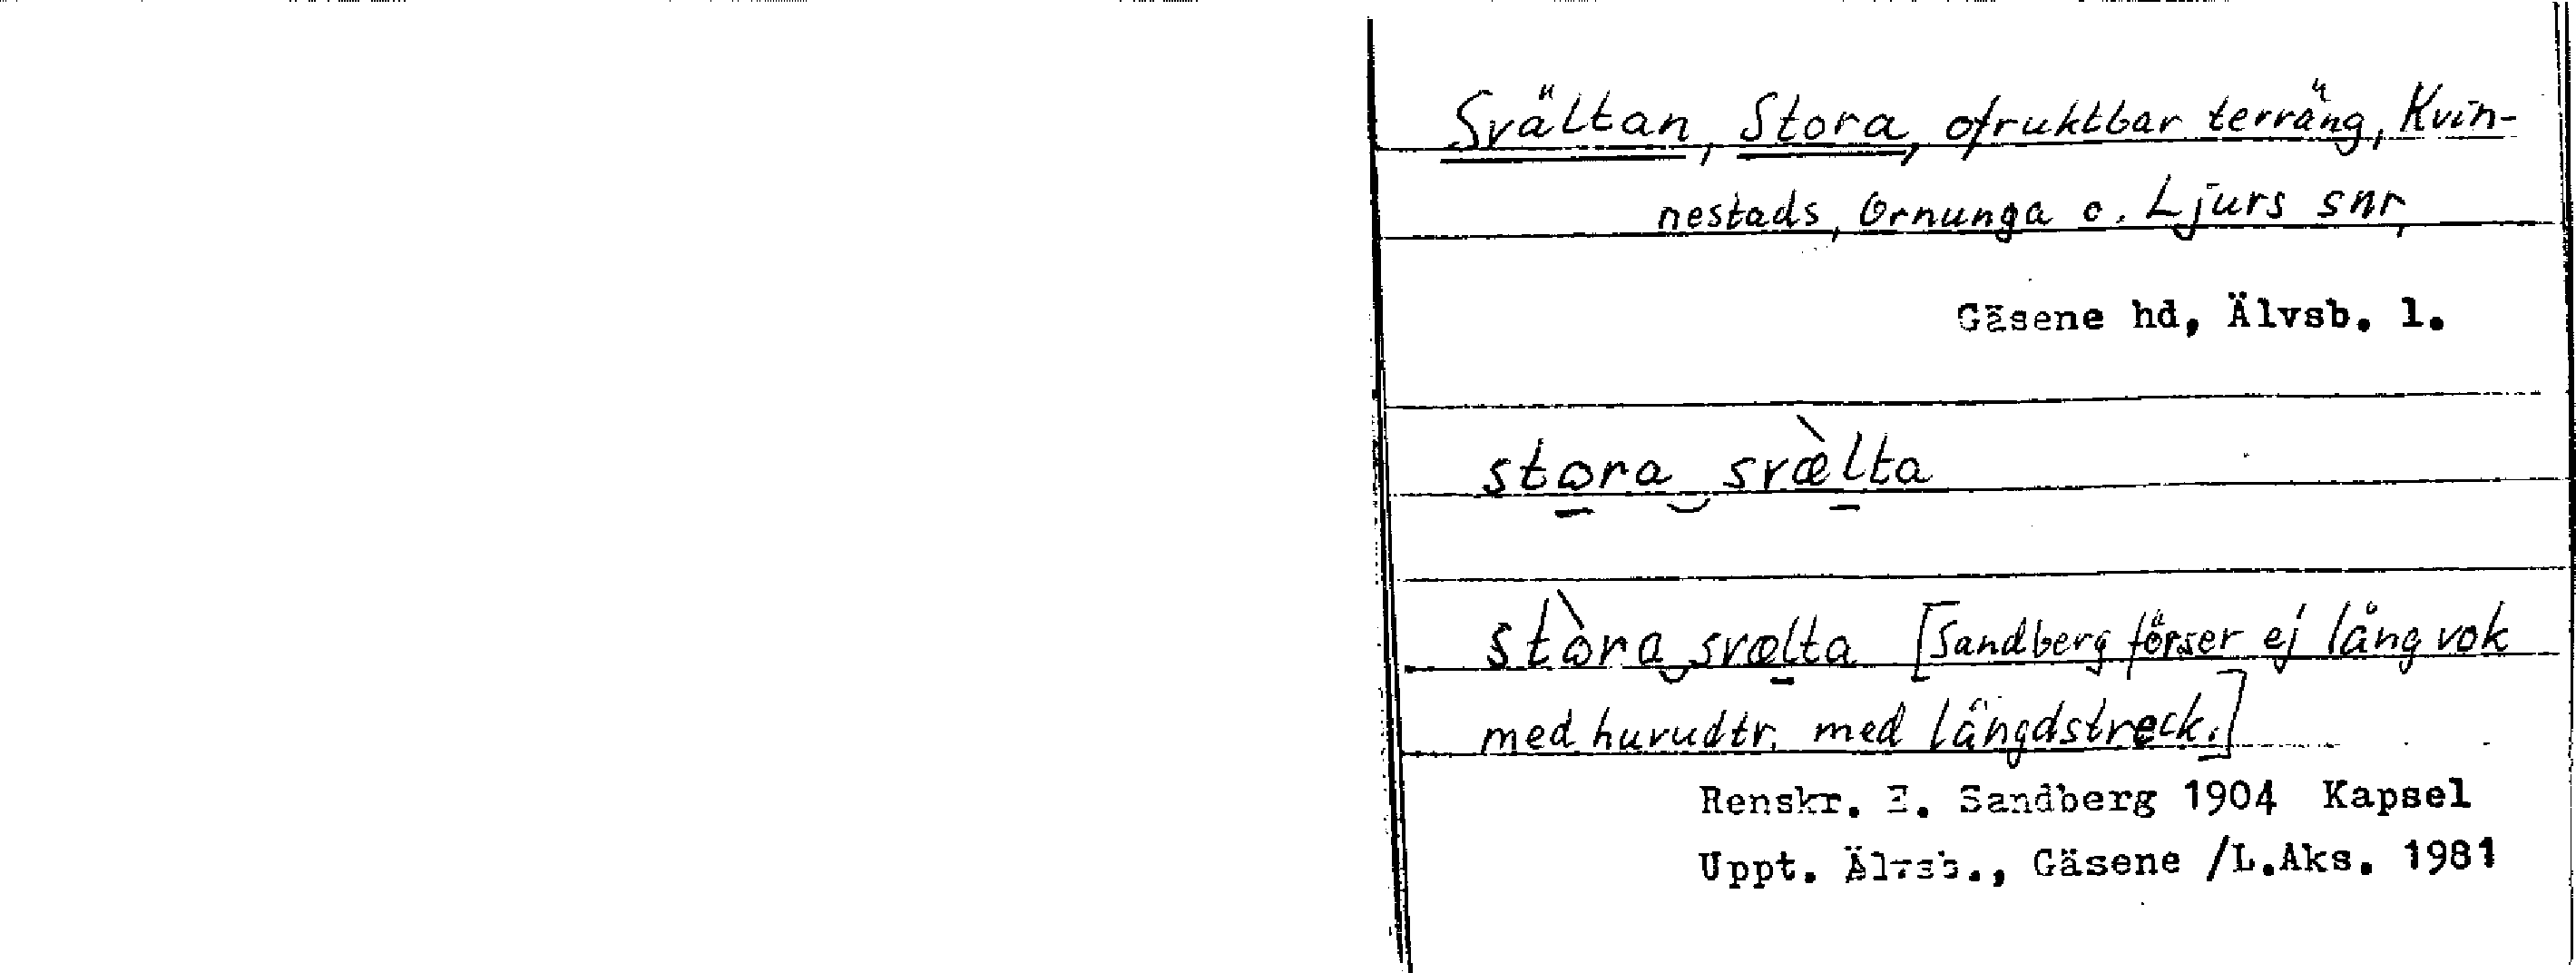 Svältan, Stora, ofruktbar terräng, Kvin-
nestads, Ornunga o. Ljurs snr,
Gäsene hd, Älvsb. l.
stora svæ̀lta
stòra svælta [Sandberg förser ej lång vok
med huvudtr. med längdstreck.]
Renskr. E. Sandberg 1904 Kapsel
Uppt. Älvsb., Gäsene /L.Aks. 1981